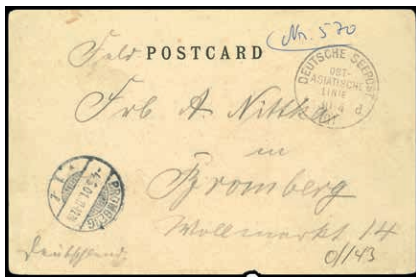 Nr. 570
Feld POSTCARD
DEUTSCHE SEEPOST
OST-
ASIATISCHE
LINIE
Frb A. Nittka
in
Bromberg
Wollmarkt 14
BROMBERG
Deutschland
0/143